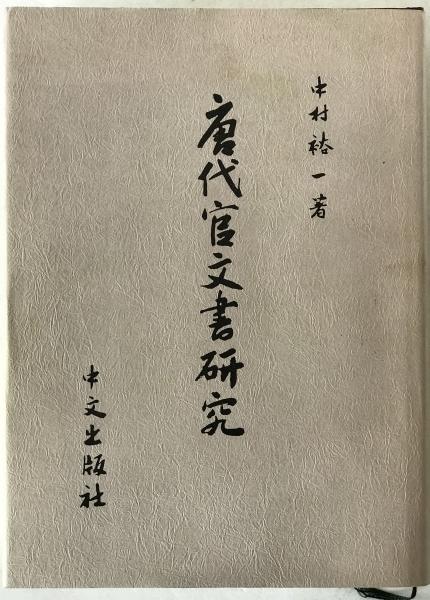 中村裕一著
唐代官文書研究
中文出版社